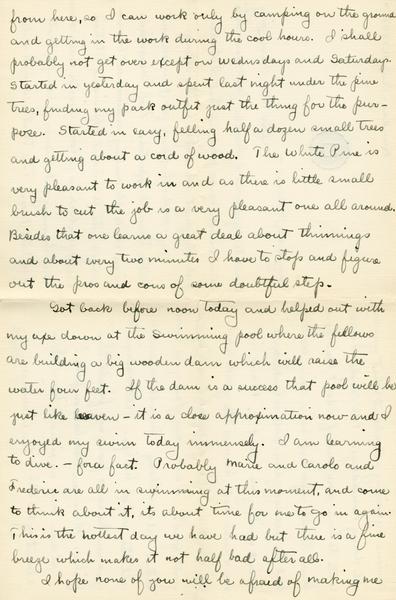 from here, so I can work only by camping on the ground
and getting in the work during the cool hours. I shall
probably not get over except on Wednesdays and Saturdays.
Started in yesterday and spent last night under the pine
trees, finding my pack outfit just the thing for the pur-
pose. Started in easy, felling half a dozen small trees
and getting about a cord of wood. The White Pine is
very pleasant to work in and as there is little small
brush to cut the job is a very pleasant one all around.
Besides that one learns a great deal about thinnings
and about every two minutes I have to stop and figure
out the pros and cons of some doubtful step.
Got back before noon today and helped out with
my axe down at the swimming pool where the fellows
are building a big wooden dam which will raise the
water four feet. If the dam is a success that pool will be
just like heaven - it is a close approximation now and I
enjoyed my swim today immensely. I am learning
to dive. - for a fact. Probably Marie and Carolo and
Frederic are all in swimming at this moment, and come
to think about it, its about time for me to go in again.
This is the hottest day we have had but there is a fine
breeze which makes it not half bad after all.
I hope none of you will be afraid of making me